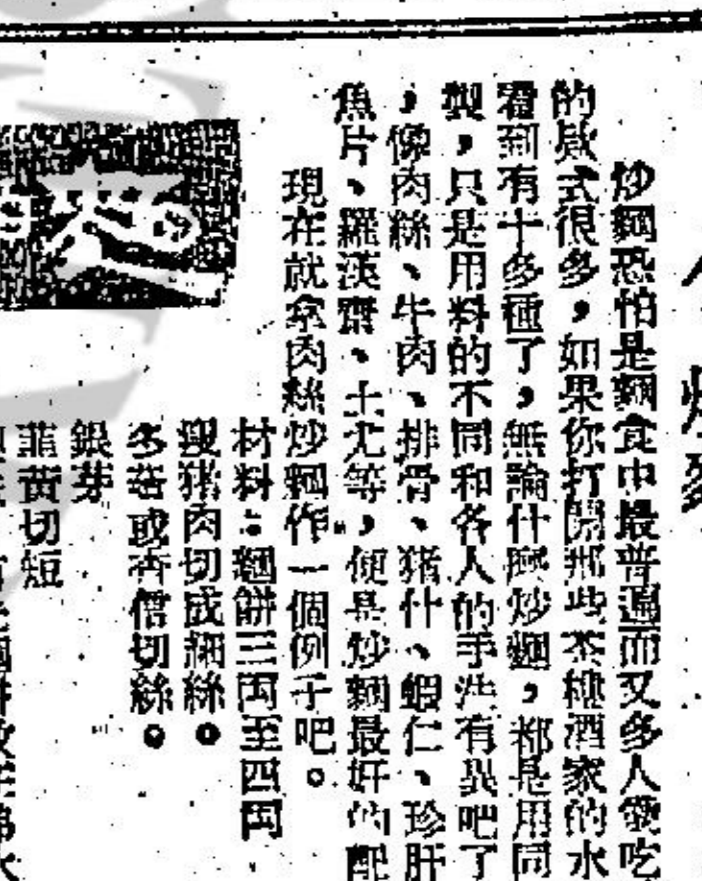 炒麵恐怕是麵食中最普遍而又多人愛吃
的欵式很多，如果你打開那些茶樓酒家的水
看到有十多種了，無論什麽炒麵，都是用同
製，只是用料的不同和各人的手法有異吧了
，像肉絲、牛肉、排骨、猪什、蝦仁、珍肝
魚片、羅漢齋、土尤等，便是炒麵最好的配
現在就拿肉絲炒麵作一個例子吧。
材料：麵餅三両至四両
瘦猪肉切成細絲。
冬菇或香信切絲。
銀芽
韮黄切短